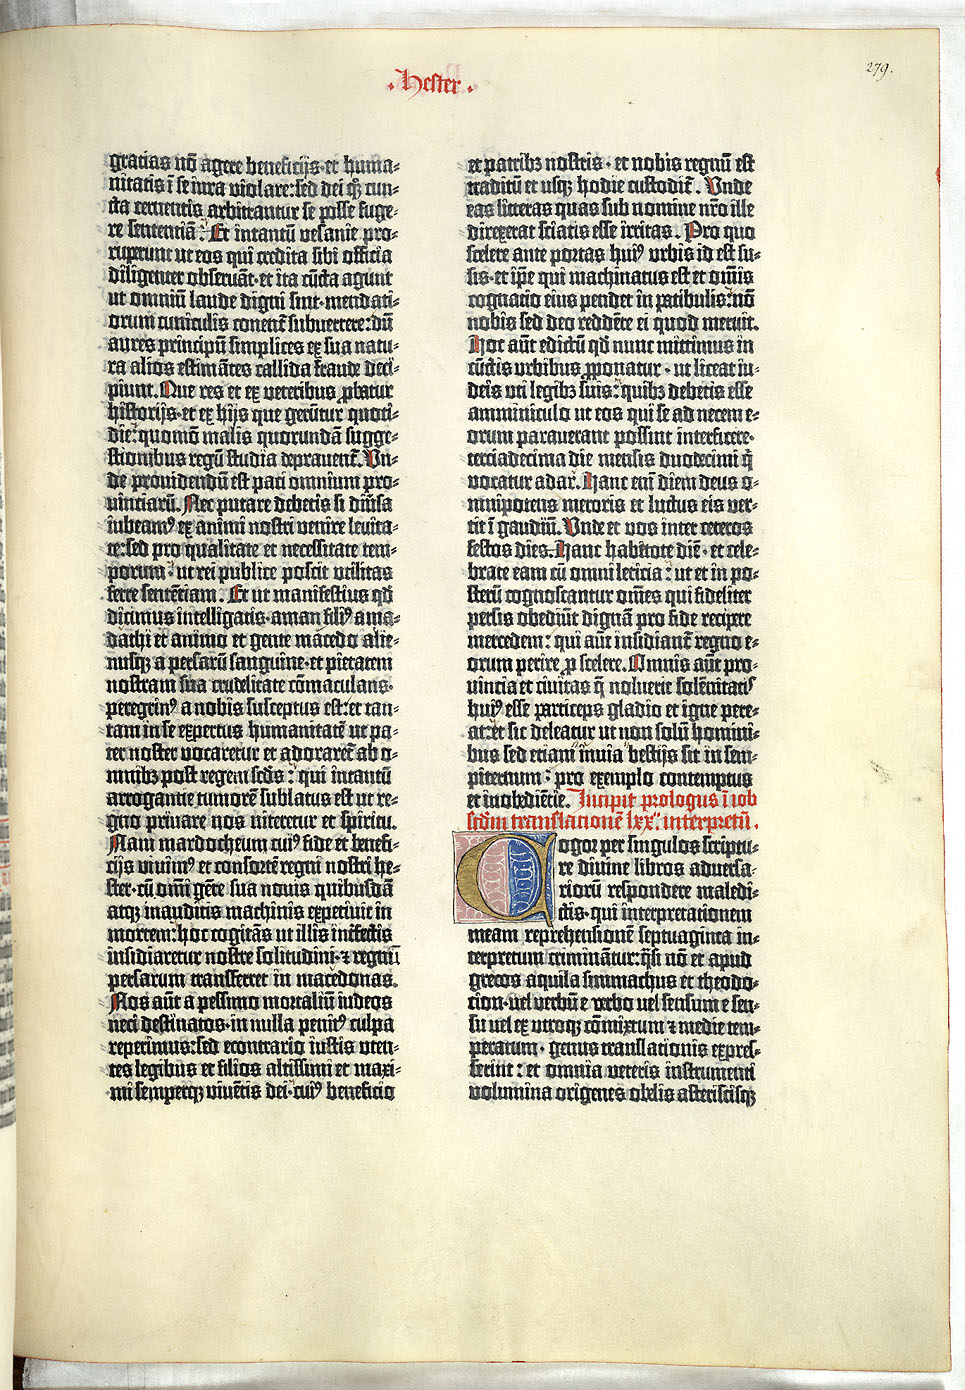 279.
· Hester ·
gratias nō agere beneficijs · et huma⸗
nitatis ī se iura violare: sed dei qͦꝫ cun⸗
cta cernentis arbitrantur se posse fuge⸗
re sententiā : Et intantū vesanie pro⸗
ruperunt ut eos qui credita sibi officia
diligenter observāt · et ita cūcta agunt
ut omniū laude digni sint · mendaci⸗
orum cuniculis conent̄ subvertere: dū
aures principū simplices ex sua natu⸗
ra alios estimātes callida fraude deci⸗
piunt. Que res et ex veteribus ꝓbatur
historijs · et ex hijs que gerūtur quoti⸗
die: quomō malis quorundā sugge⸗
stionibus regū studia depravent̄. Un⸗
de providendū est paci omnium pro⸗
vinciarū. Nec putare debetis si diūsa
iubeamꝰ ex animi nostri venire levita⸗
te: sed pro qualitate et necessitate tem⸗
porum · ut rei publice poscit utilitas
ferre sentētiam. Et ut manifestius qd̄
dicimus intelligatis · aman filiꝰ ama⸗
dathi et animo et gente macedo alie⸗
nusqꝫ a persarū sanguine · et pietatem
nostram sua crudelitate cōmaculans ·
peregrinꝰ a nobis susceptus est: et tan⸗
tam in se expertus humanitatē ut pa⸗
ter noster vocaretur et adoraret̄ ab o⸗
mnibꝫ post regem scd̄s : qui intantū
arrogantie tumorē sublatus est ut re⸗
gno privare nos niteretur et spiritu.
Nam mardocheum cuiꝰ fide et benefi⸗
cijs vivimꝰ et consortē regni nostri he⸗
ster · cū om̄i gēte sua novis quibusdā
atqꝫ inauditis machinis expetivit in
mortem: hoc cogitās ut illis int̄fectis
insidiaretur nostre solitudini · ⁊ regnū
persarum transferret in macedonas.
Nos aūt a pessimo mortaliū iudeos
neci destinatos · in nulla penitꝰ culpa
reperimus: sed econtrario iustis uten⸗
tes legibus et filios altissimi et maxi⸗
mi semperqꝫ vivētis dei · cuiꝰ beneficio
et patribꝫ nostris · et nobis regnū est
traditū et usqꝫ hodie custodit̄. Unde
eas litteras quas sub nomine nr̄o ille
direxerat sciatis esse irritas. Pro quo
scelere ante portas huiꝰ urbis id est su⸗
sis · et ip̄e qui machinatus est et om̄is
cognatio eius pendet in patibulis: nō
nobis sed deo reddēte ei quod meruit.
Hoc aūt edictū qd̄ nunc mittimus in
cūctis urbibus ꝓponatur · ut liceat iu⸗
deis uti legibꝫ suis: quibꝫ debetis esse
amminiculo ut eos qui se ad necem e⸗
orum paraverant possint interficere ·
terciadecima die mensis duodecimi q̄
vocatur adar. Hanc em̄ diem deus o⸗
mnipotens meroris et luctus eis ver⸗
tit ī gaudiū. Unde et vos inter ceteros
festos dies · Hanc habetote diē · et cele⸗
brate eam cū omni leticia : ut et in po⸗
sterū cognoscantur om̄es qui fideliter
persis obediūt dignā pro fide recipere
mercedem: qui aūt insidiant̄ regno e⸗
orum perire ꝓ scelere. Omnis aūt pro⸗
vincia et civitas q̄ noluerit solēnitatis
huiꝰ esse particeps gladio et igne pere⸗
at: et sic deleatur ut non solū homini⸗
bus sed etiam invia bestijs sit in sem⸗
piternum : pro exemplo contemptus
et inobediētie. Incipit prologus ī iob
scd̄m translationē lxxᵃ. interpretū.
Cogor per singulos scriptu⸗
re divine libros adversa⸗
riorū respondere maledi⸗
ctis · qui interpretationem
meam reprehensionē septuaginta in⸗
terpretum criminātur: q̄si nō et apud
grecos aquila simmachus et theodo⸗
cion · vel verbū e verbo vel sensum e sen⸗
su vel ex utroqꝫ cōmixtum ⁊ medie tem⸗
peratum · genus translationis expres⸗
serint : et omnia veteris instrumenti
volumina origenes obelis asteriscisqꝫ